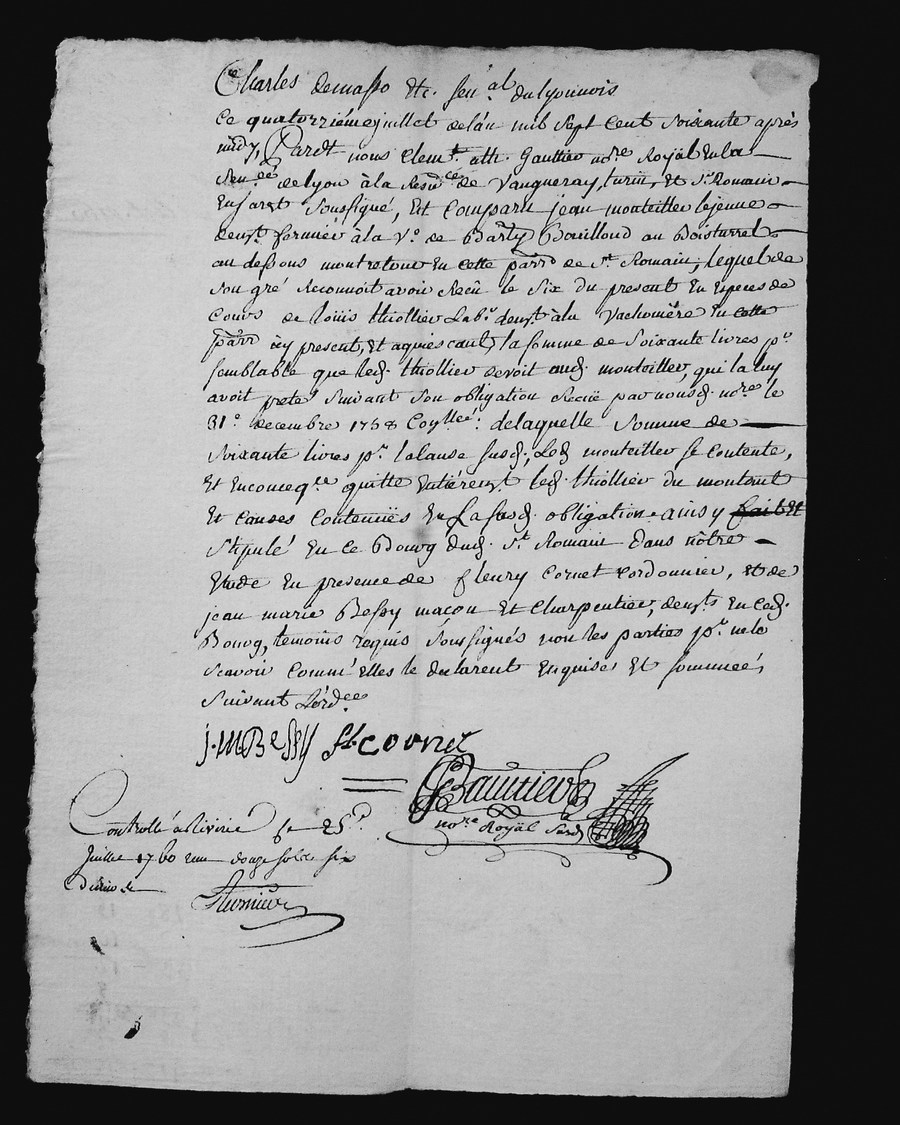 Charles demasso Etc. sen.al du lyonnois
ce quatorziéme juillet de l'an mil sept cent soixante après
midy, Pardt nous Clemt. att. Gauttier nore. Royal en la
Sen.ée de lyon à la Resid.ce de Vaugneray, turin, Et St. Romain
En jarest soussigné, Est comparu jean monteiller lejeune
demt. fermier à la Ve. de Barty Bouilloud au Boisturrel
au dessous montretour En cette parr. de St. Romain, lequel de
son gré Reconnoit avoir Reçû le six du present En especes de
cours de loüis thiollier Labr. demt. à la Vachonière En cette
parr. icy present, Et aquiesceant, la somme de soixante livres pr.
semblable que led. thiollier devoit aud. monteiller, qui la luy
avoit pretée suivant son obligation Reciie par nousd. nore. le
31e. decembre 1758 Coñllée: de laquelle somme de
soixante livres pr. la Cause susd., Led. monteiller se contente,
Et En conceq.ce quitte Entièremt. led. thiollier du montant
Et causes contenües En La susd. obligation. ainsy fait Et
stipulé En ce Bourg dud. St. Romain dans nôtre
Etude En presence de fleury Cornet cordonnier, Et de
jean marie Bessy maçon Et Charpentier, demts. En ced.
Bourg, temoins requis soussignés non les parties pr. ne le
scavoir comm'elles le declarent Enquises Et sommées
suivant L'ord.ce
j. m Bessy fl. cornet
Gauttier
nore. Royal
Controllé à Riverie le 25e
juillet 1760 reçu douze sols six
deniers